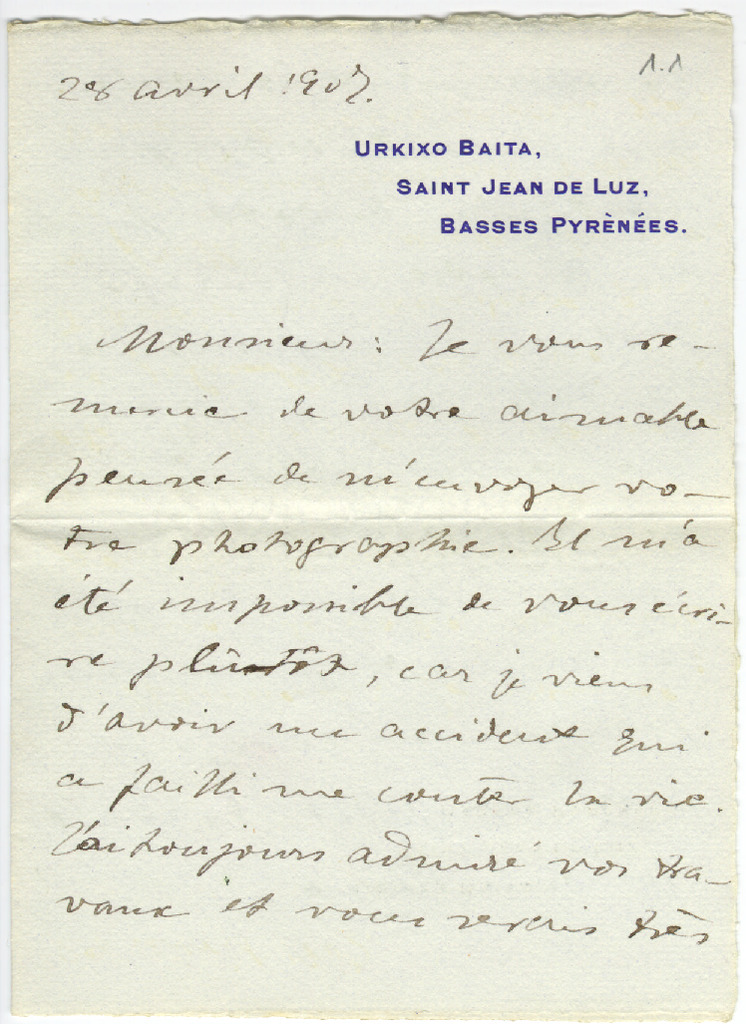 1.1
28 avril 1907.
URKIXO BAITA,
SAINT JEAN DE LUZ,
BASSES PYRÈNÉES.
Monsieur: Je vous re-
mercie de votre aimable
pensée de m'envoyer vo-
tre photographie. Il m'a
été impossible de vous écri-
re plûtôt, car je viens
d'avoir un accident qui
a failli me couter la vie.
J'ai toujours admiré vos tra-
vaux et vous serais très